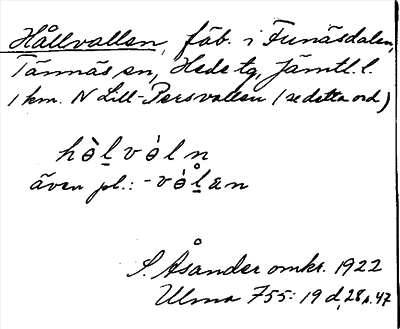 Hållvallen, fäb. i Funäsdalen,
Tännäs sn, Hede tg, Jämtl. l.
1 km. N Lill-Persvallen (se detta ord)
hòlvóln
även pl.: -vólæn
S. Åsander omkr. 1922
Ulma 755: 19 d, 28 s. 47